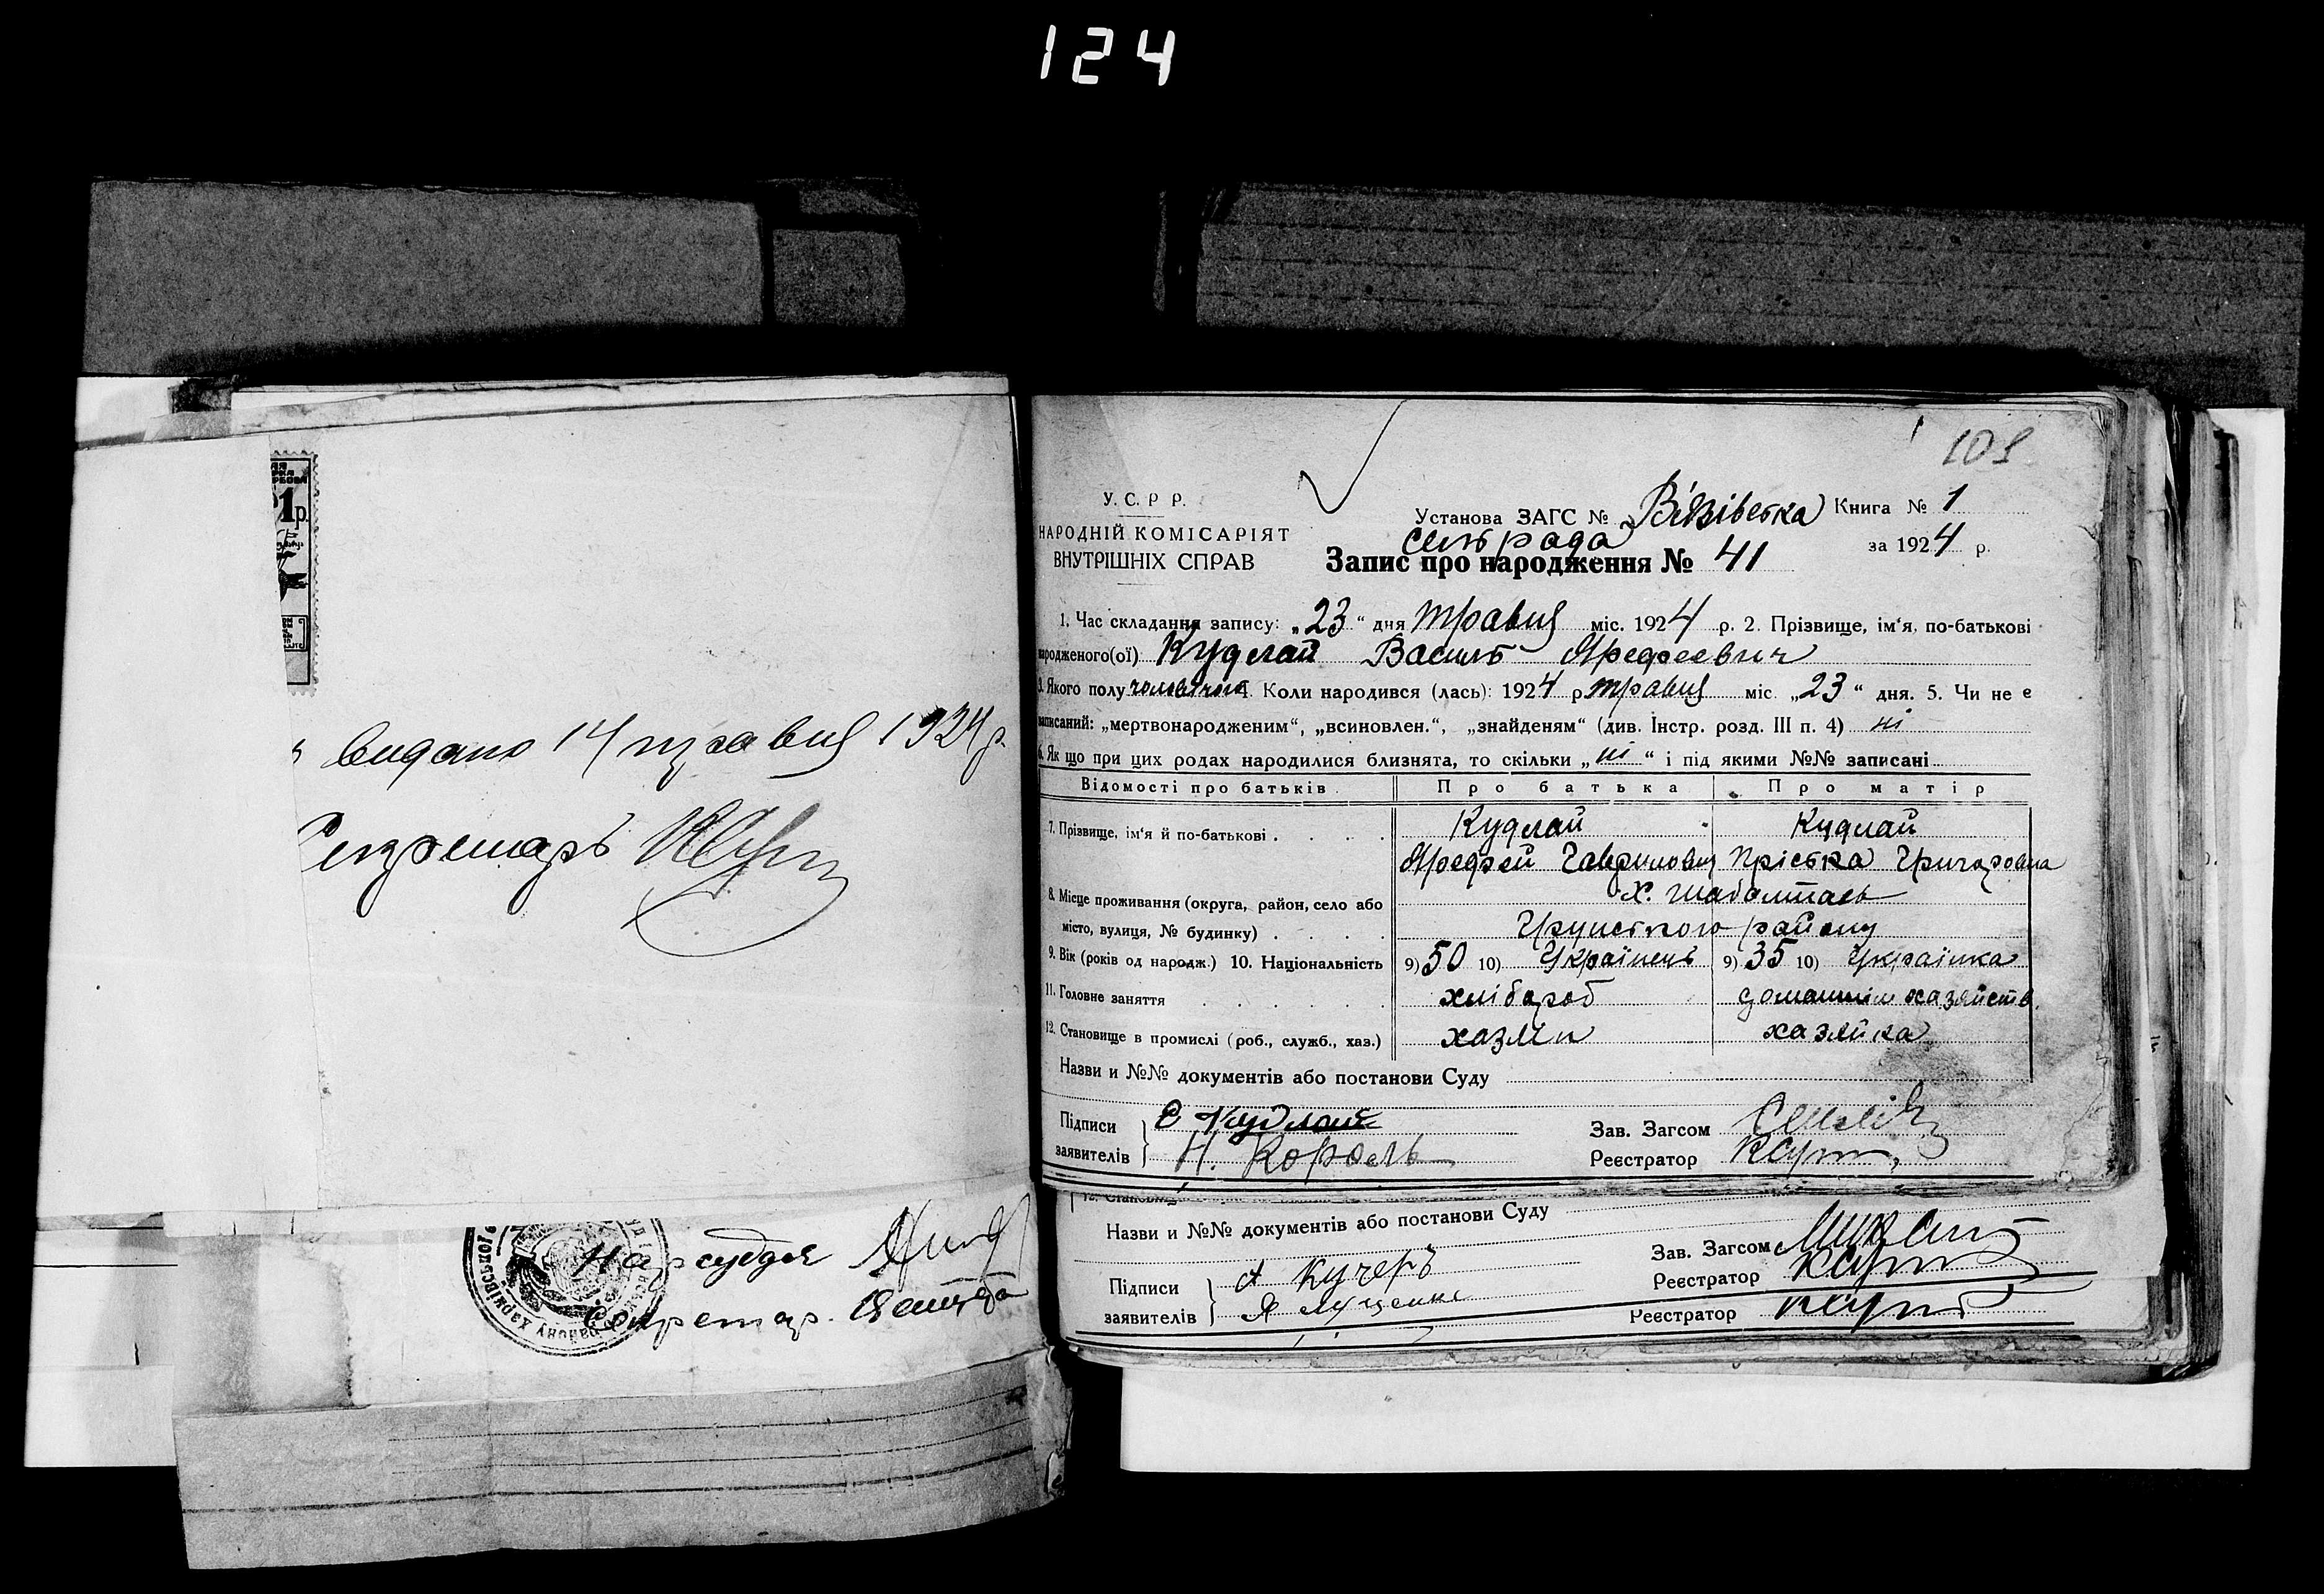 124
1р.
видано 14 травня 1924 р.
Секретарь
Нарсуддя
Секретар.
109
У. С. Р Р.
НАРОДНІЙ КОМІСАРІЯТ
ВНУТРІШНІХ СПРАВ
Установа ЗАГС № Вязівська Книга № 1
сельрада
за 1924 р.
Запис про народження № 41
1. Час складання запису: „23“ дня травня міс. 1924 р. 2. Прізвище, ім‘я, по-батькові
народженого(ої) Кудлай Василь Арефеевич
3. Якого полу чоловічого 4. Коли народився (лась): 1924 р травня міс. „23“ дня. 5. Чи не є
записаний: „мертвонародженим“, „всиновлен.“, „знайденям“ (див. Інстр. розд. III п. 4) ні
6. Як що при цих родах народилися близнята, то скільки „ні“ і під якими №№ записані
Відомості про батьків. Про батька Про матір
7. Прізвище, ім‘я й по-батькові Кудлай Кудлай
Арефей Гаврилович Пріська Григоровна
8. Місце проживання (округа, район, село або х. Шабалтаєв
місто, вулиця, № будинку) Грунського району
9. Вік (років од народж.) 10. Національність 9) 50 10) Українець 9) 35 10) Українка
11. Головне заняття хлібороб домашнім хазяйств.
12. Становище в промислі (роб., служб., хаз.) хазяін хазяйка
Назви и №№ документів або постанови Суду
Підписи Є Кудлай Зав. Загсом
заявителів Н. Король Реєстратор
Назви и №№ документів або постанови Суду
Зав. Загсом
Підписи А Кучерь Реєстратор
заявителів Я Луценко Реєстратор